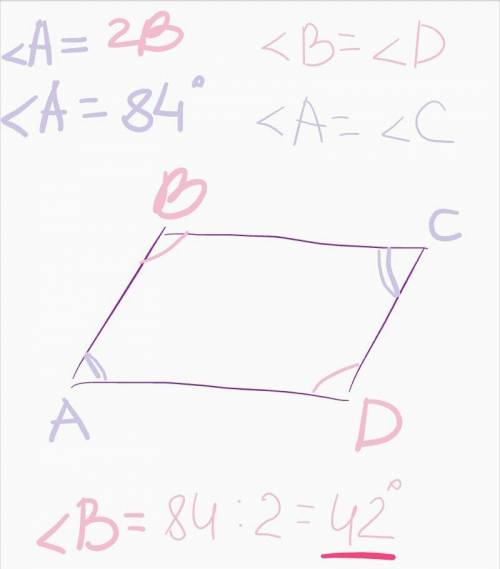 ∠A = 2B
∠B = ∠D
∠A = 84°
∠A = ∠C
B
C
A
D
∠B = 84 : 2 = 42°